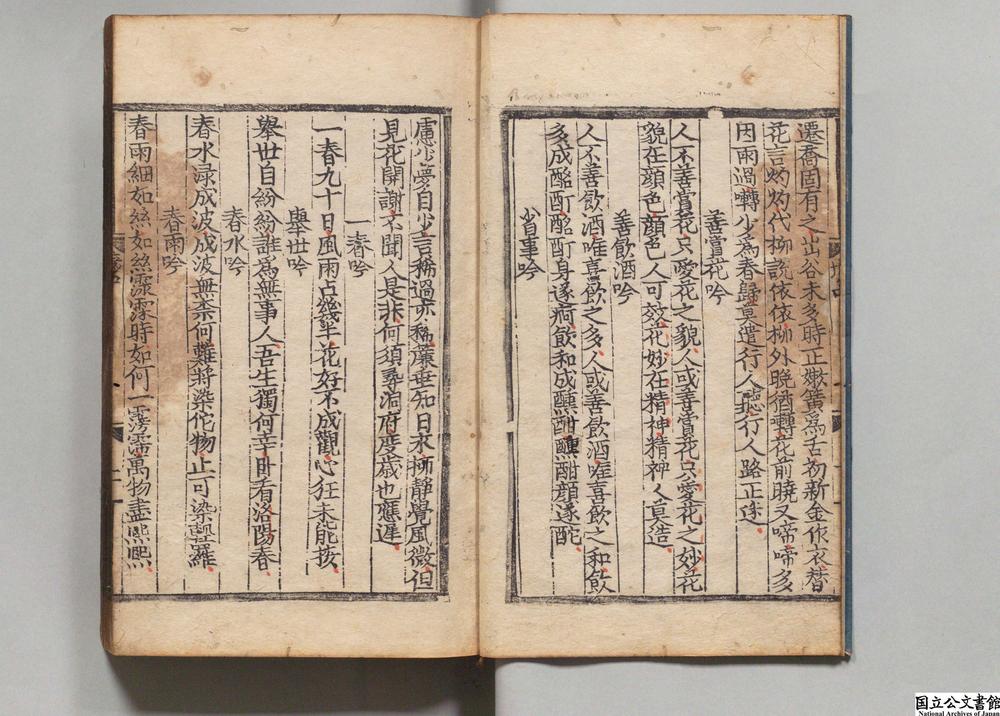 遷喬固有之出谷未多時正嫩簧爲舌初新金作衣替
花言灼灼代柳說依依柳外晚猶轉花前曉又啼啼多
因雨過囀少爲春歸莫遣行人聽行人路正迷
善賞花吟
人不善賞花只愛花之貌人或善賞花只愛花之妙花
貌在顔色顔色人可效花妙在精神精神人莫造
善飲酒吟
人不善飲酒唯喜飲之多人或善飲酒唯喜飲之和飲
多成酩酊酩酊身遂痾飲和成醺酣醺酣顔遂酡
省事吟
慮少夢自少言稀過亦稀簾垂知日永柳靜覺風微但
見花開謝不聞人是非何須尋洞府度歲也應遲
一春吟
一春九十日風雨占幾半花好不成觀心狂未能按
舉世吟
舉世自紛紛誰爲無事人吾生獨何幸卧看洛陽春
春水吟
春水渌成波成波無柰何難將染佗物止可染輕羅
春雨吟
春雨細如絲如絲霡霂時如何一霶霈萬物盡熙熙
国立公文書館
National Archives of Japan